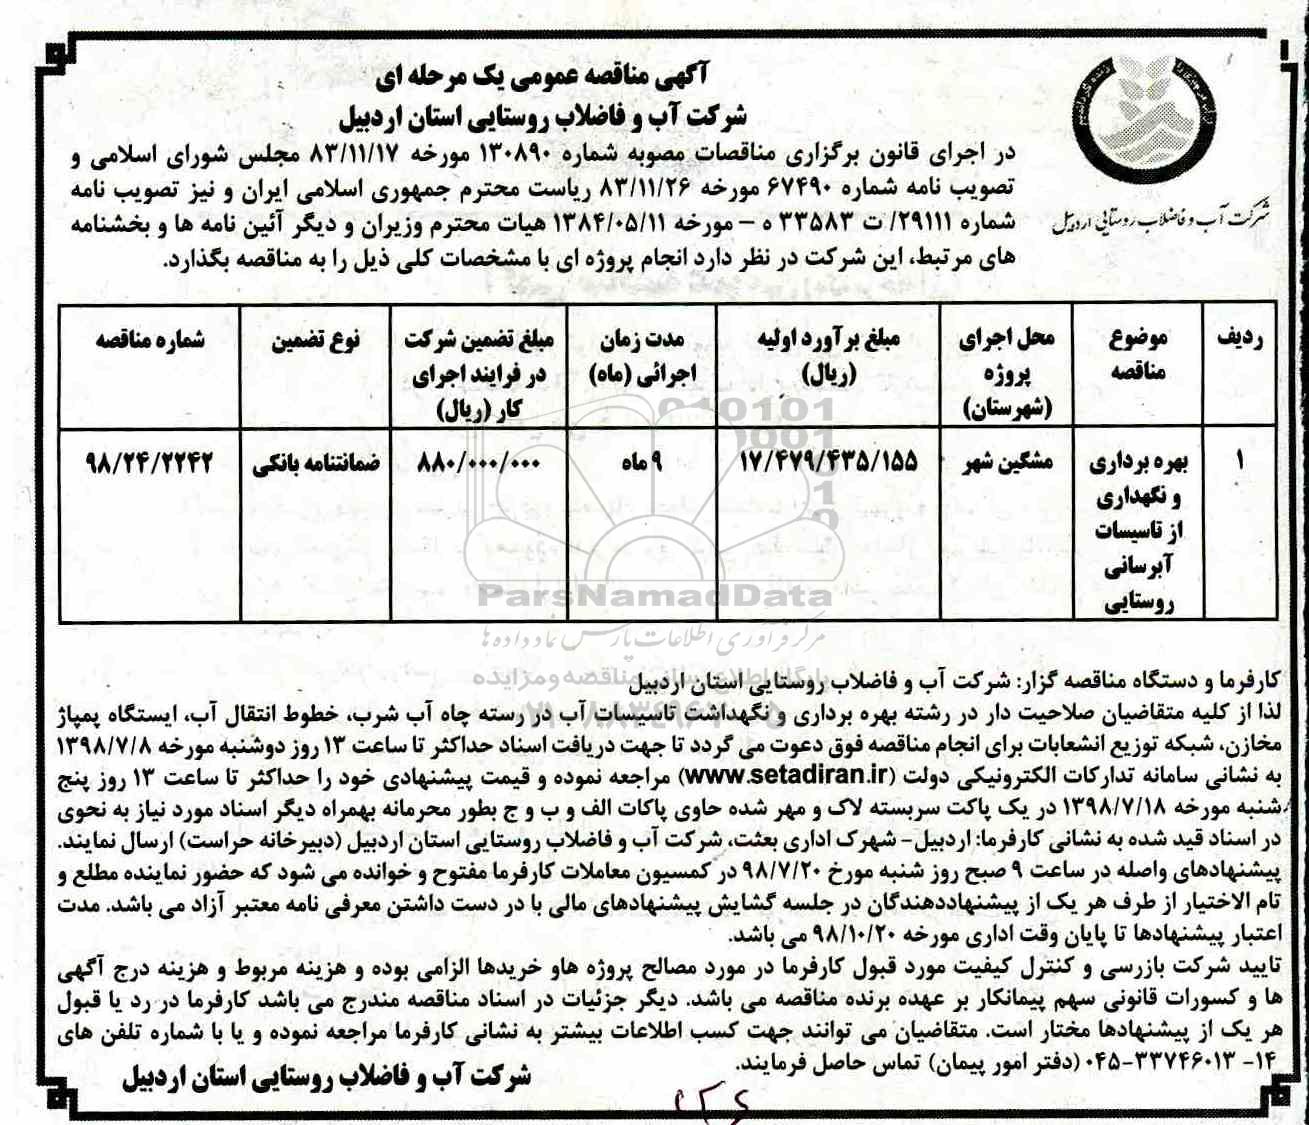 آگهی مناقصه عمومی یک مرحله ای
شرکت آب و فاضلاب روستایی استان اردبیل
شرکت آب و فاضلاب روستایی اردبیل
در اجرای قانون برگزاری مناقصات مصوبه شماره ۱۳۰۸۹۰ مورخه ۸۳/۱۱/۱۷ مجلس شورای اسلامی و
تصویب نامه شماره ۶۷۴۹۰ مورخه ۸۳/۱۱/۲۶ ریاست محترم جمهوری اسلامی ایران و نیز تصویب نامه
شماره ۲۹۱۱۱/ ت ۳۳۵۸۳ ه – مورخه ۱۳۸۴/۰۵/۱۱ هیات محترم وزیران و دیگر آئین نامه ها و بخشنامه
های مرتبط، این شرکت در نظر دارد انجام پروژه ای با مشخصات کلی ذیل را به مناقصه بگذارد.
ردیف
موضوع
مناقصه
محل اجرای
پروژه
(شهرستان)
مبلغ برآورد اولیه
(ریال)
مدت زمان
اجرائی (ماه)
مبلغ تضمین شرکت
در فرایند اجرای
کار (ریال)
نوع تضمین
شماره مناقصه
۱
بهره برداری
و نگهداری
از تاسیسات
آبرسانی
روستایی
مشگین شهر
۱۷/۴۷۹/۴۳۵/۱۵۵
۹ ماه
۸۸۰/۰۰۰/۰۰۰
ضمانتنامه بانکی
۹۸/۲۴/۲۲۴۲
ParsNamadData
مرکز فرآوری اطلاعات پارس نماد داده ها
کارفرما و دستگاه مناقصه گزار: شرکت آب و فاضلاب روستایی استان اردبیل
لذا از کلیه متقاضیان صلاحیت دار در رشته بهره برداری و نگهداشت تاسیسات آب در رسته چاه آب شرب، خطوط انتقال آب، ایستگاه پمپاژ
مخازن، شبکه توزیع انشعابات برای انجام مناقصه فوق دعوت می گردد تا جهت دریافت اسناد حداکثر تا ساعت ۱۳ روز دوشنبه مورخه ۱۳۹۸/۷/۸
به نشانی سامانه تدارکات الکترونیکی دولت (www.setadiran.ir) مراجعه نموده و قیمت پیشنهادی خود را حداکثر تا ساعت ۱۳ روز پنج
شنبه مورخه ۱۳۹۸/۷/۱۸ در یک پاکت سربسته لاک و مهر شده حاوی پاکات الف و ب و ج بطور محرمانه بهمراه دیگر اسناد مورد نیاز به نحوی
در اسناد قید شده به نشانی کارفرما: اردبیل- شهرک اداری بعثت، شرکت آب و فاضلاب روستایی استان اردبیل (دبیرخانه حراست) ارسال نمایند.
پیشنهادهای واصله در ساعت ۹ صبح روز شنبه مورخ ۹۸/۷/۲۰ در کمسیون معاملات کارفرما مفتوح و خوانده می شود که حضور نماینده مطلع و
تام الاختیار از طرف هر یک از پیشنهاددهندگان در جلسه گشایش پیشنهادهای مالی با در دست داشتن معرفی نامه معتبر آزاد می باشد. مدت
اعتبار پیشنهادها تا پایان وقت اداری مورخه ۹۸/۱۰/۲۰ می باشد.
تایید شرکت بازرسی و کنترل کیفیت مورد قبول کارفرما در مورد مصالح پروژه هاو خریدها الزامی بوده و هزینه مربوط و هزینه درج آگهی
ها و کسورات قانونی سهم پیمانکار بر عهده برنده مناقصه می باشد. دیگر جزئیات در اسناد مناقصه مندرج می باشد کارفرما در رد یا قبول
هر یک از پیشنهادها مختار است. متقاضیان می توانند جهت کسب اطلاعات بیشتر به نشانی کارفرما مراجعه نموده و یا با شماره تلفن های
۱۴- ۳۳۷۴۶۰۱۳-۰۴۵ (دفتر امور پیمان) تماس حاصل فرمایند.
شرکت آب و فاضلاب روستایی استان اردبیل